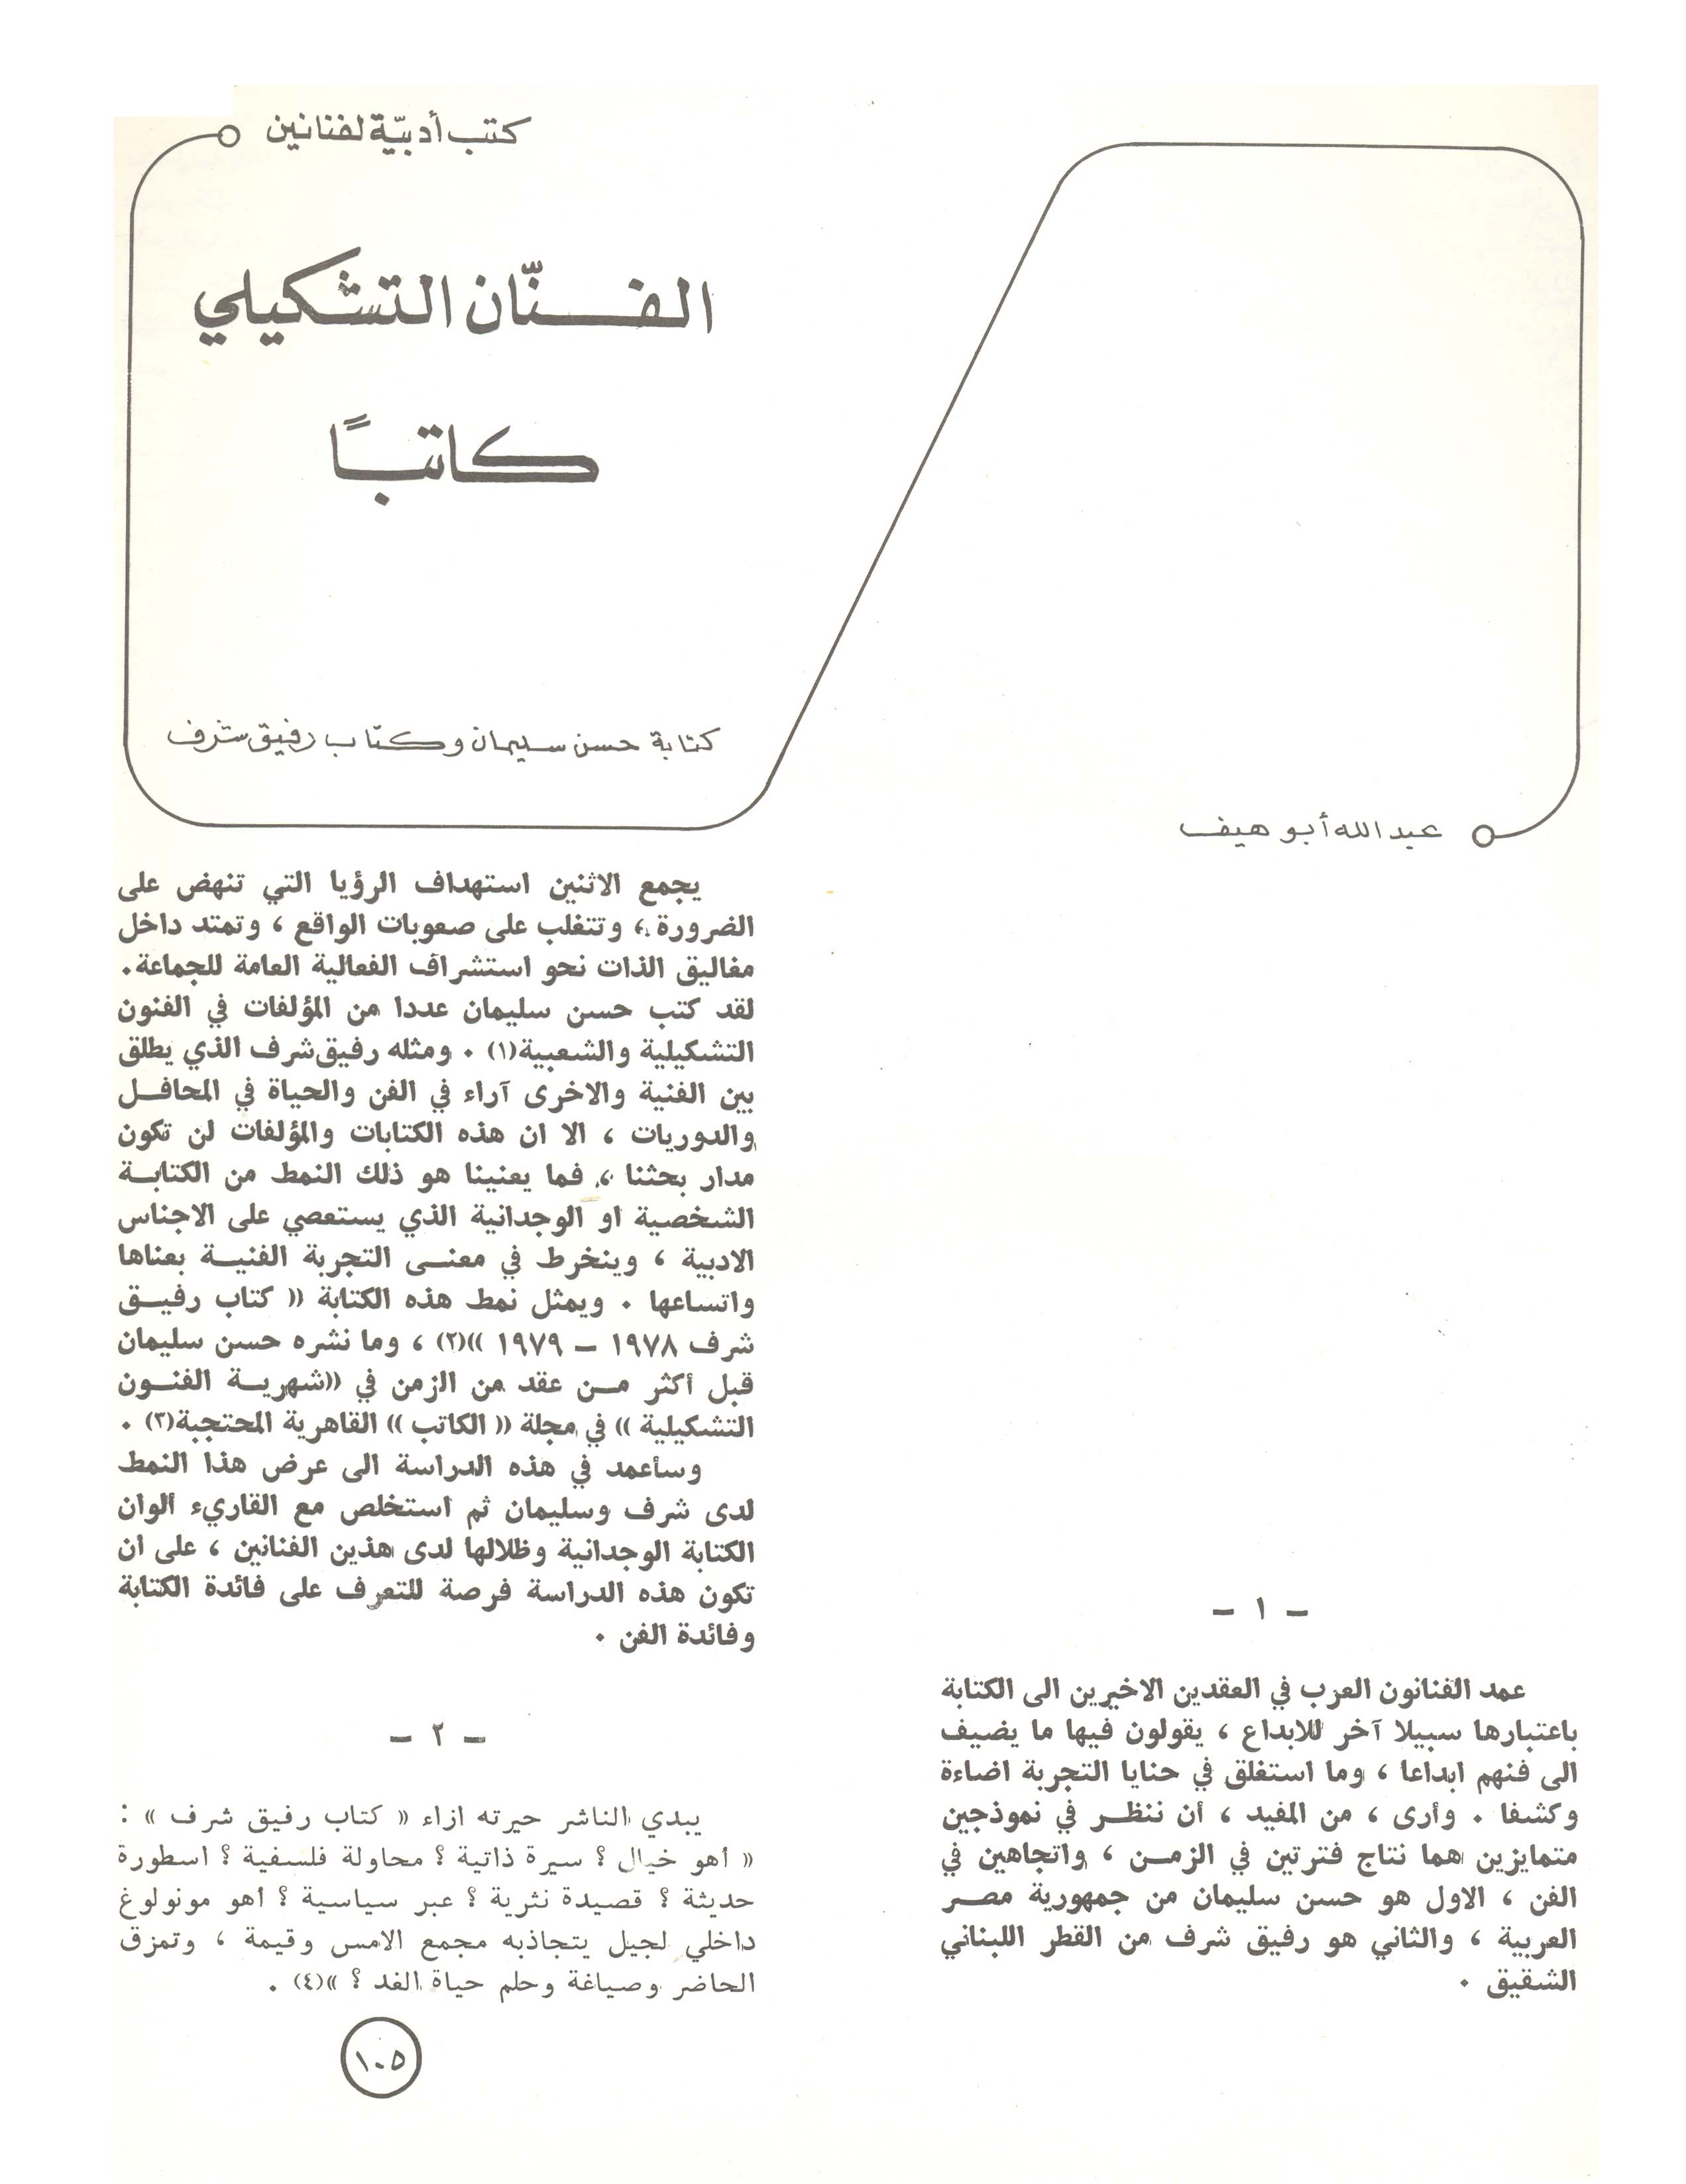 كتب أدبيّة لفنانين
الفنّان التشكيلي
كاتبًا
كتابة حسن سليمان وكتاب رفيق شرف
عبد الله أبو هيف
- ١ -
عمد الفنانون العرب في العقدين الاخيرين الى الكتابة
باعتبارها سبيلا آخر للابداع ، يقولون فيها ما يضيف
الى فنهم ابداعا ، وما استغلق في حنايا التجربة اضاءة
وكشفا . وأرى ، من المفيد ، أن ننظر في نموذجين
متمايزين هما نتاج فترتين في الزمن ، واتجاهين في
الفن ، الاول هو حسن سليمان من جمهورية مصر
العربية ، والثاني هو رفيق شرف من القطر اللبناني
الشقيق .
يجمع الاثنين استهداف الرؤيا التي تنهض على
الضرورة ، وتتغلب على صعوبات الواقع ، وتمتد داخل
مغاليق الذات نحو استشراف الفعالية العامة للجماعة .
لقد كتب حسن سليمان عددا من المؤلفات في الفنون
التشكيلية والشعبية(١) . ومثله رفيق شرف الذي يطلق
بين الفنية والاخرى آراء في الفن والحياة في المحافل
والدوريات ، الا ان هذه الكتابات والمؤلفات لن تكون
مدار بحثنا ، فما يعنينا هو ذلك النمط من الكتابة
الشخصية او الوجدانية الذي يستعصي على الاجناس
الادبية ، وينخرط في معنى التجربة الفنية بعناها
واتساعها . ويمثل نمط هذه الكتابة (( كتاب رفيق
شرف ١٩٧٨ - ١٩٧٩ ))(٢) ، وما نشره حسن سليمان
قبل أكثر من عقد من الزمن في ((شهرية الفنون
التشكيلية )) في مجلة (( الكاتب )) القاهرية المحتجبة(٣) .
وسأعمد في هذه الدراسة الى عرض هذا النمط
لدى شرف وسليمان ثم استخلص مع القاريء ألوان
الكتابة الوجدانية وظلالها لدى هذين الفنانين ، على ان
تكون هذه الدراسة فرصة للتعرف على فائدة الكتابة
وفائدة الفن .
- ٢ -
يبدي الناشر حيرته ازاء « كتاب رفيق شرف » :
« أهو خيال ؟ سيرة ذاتية ؟ محاولة فلسفية ؟ اسطورة
حديثة ؟ قصيدة نثرية ؟ عبر سياسية ؟ أهو مونولوغ
داخلي لجيل يتجاذبه مجمع الامس وقيمة ، وتمزق
الحاضر وصياغة وحلم حياة الغد ؟ »(٤) .
١٠٥